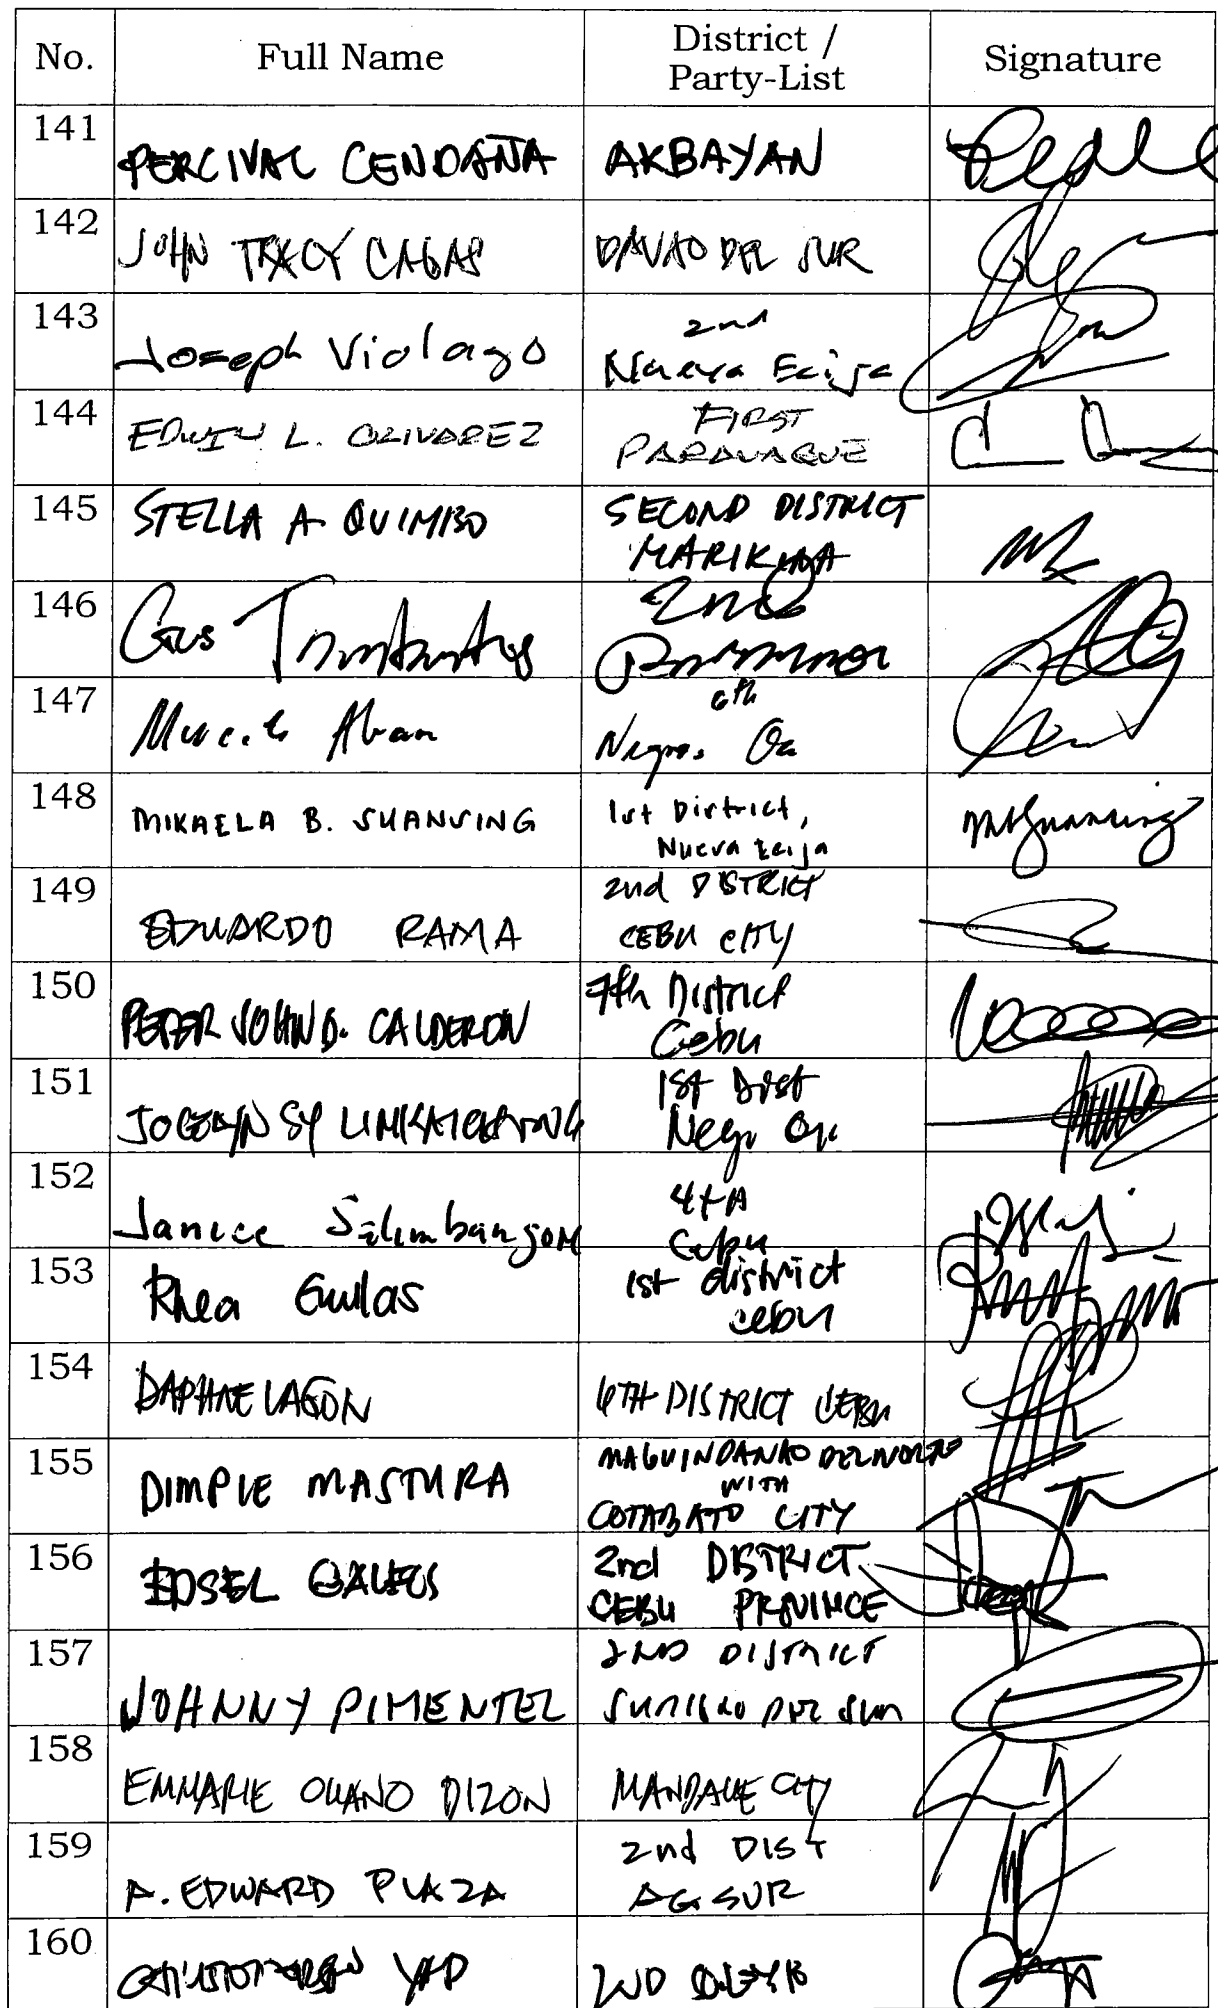 No. Full Name District / Party-List Signature
141 PERCIVAL CENDAÑA AKBAYAN
142 JOHN TRACY CAGAS DAVAO DEL SUR
143 Joseph Violago 2nd
Nueva Ecija
144 EDWIN L. OLIVAREZ FIRST
PARANAQUE
145 STELLA A QUIMBO SECOND DISTRICT
MARIKINA
146 Gus Tambunting 2nd
147 Mercedes Alvarez 6th
Negros Occ
148 MIKAELA B. SUANSING 1st District,
Nueva Ecija
149 EDUARDO RAMA 2nd DISTRICT
CEBU CITY
150 PETER JOHN D. CALDERON 7th District
Cebu
151 JOCELYN SY LIMKAICHONG 1st Dist
Negr Or
152 Janice Salimbangon 4th
Cebu
153 Rhea Gullas 1st district
cebu
154 DAPHNE LAGON 6TH DISTRICT CEBU
155 DIMPLE MASTURA MAGUINDANAO DEL NORTE
WITH
COTABATO CITY
156 EDSEL GALEOS 2nd DISTRICT
CEBU PROVINCE
157 JOHNNY PIMENTEL 2ND DISTRICT
SURIGAO DEL SUR
158 EMMARIE OUANO DIZON MANDAUE CITY
159 A. EDWARD PLAZA 2nd DIST
AG SUR
160 YAP 2ND